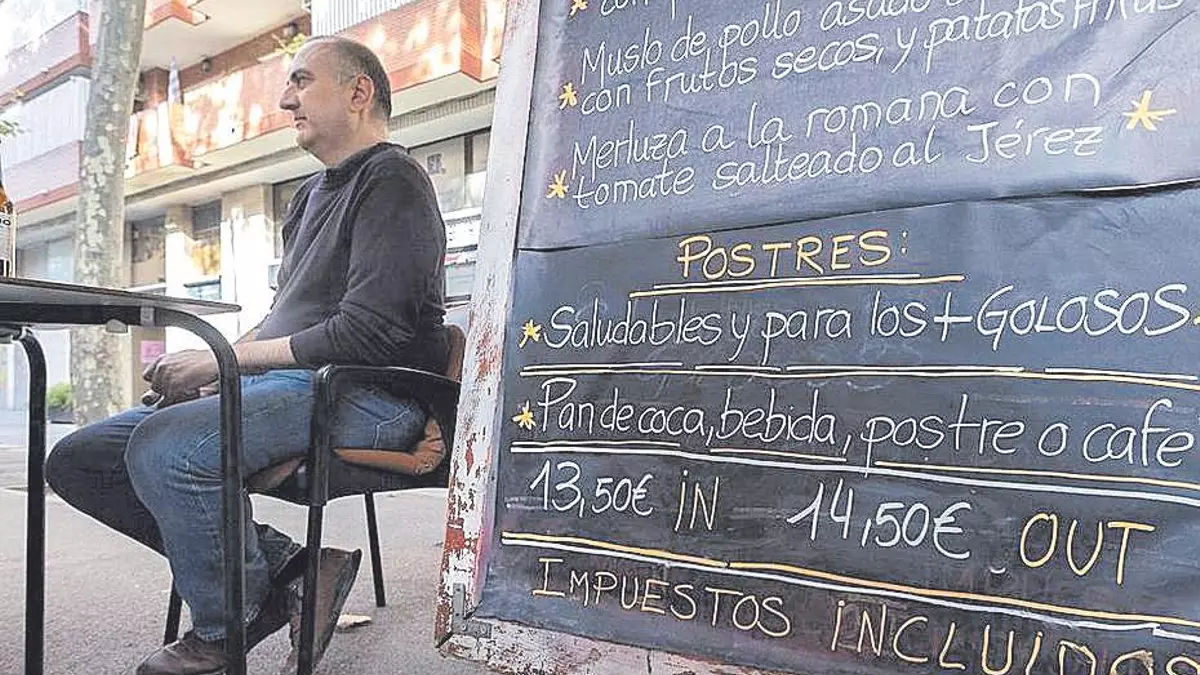 Muslo de pollo asado
con frutos secos, y patatas fritas
Merluza a la romana con
tomate salteado al Jérez
POSTRES:
Saludables y para los + GOLOSOS
Pan de coca, bebida, postre o cafe
13,50€ IN 14,50€ OUT
IMPUESTOS INCLUIDOS